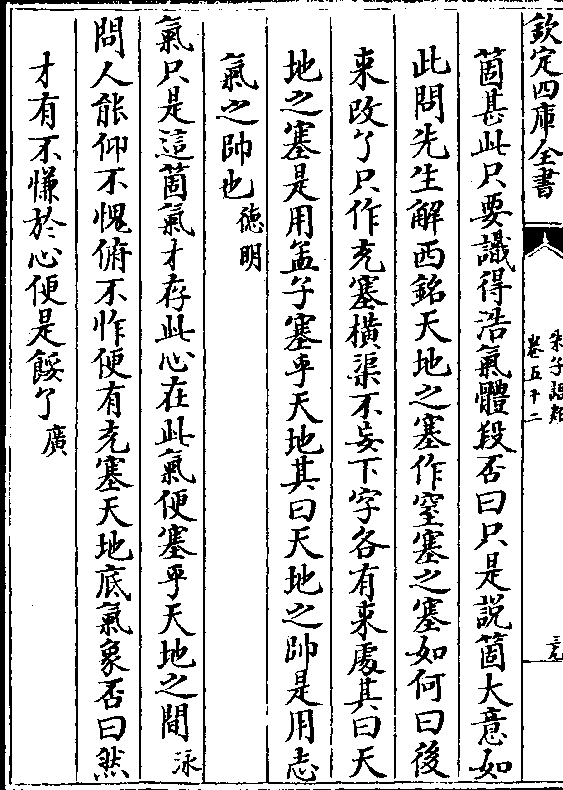 欽定四庫全書
朱子語類
卷五十二
三九
箇甚此只要識得浩氣體段否曰只是說箇大意如
此問先生解西銘天地之塞作窒塞之塞如何曰後
来改了只作充塞橫渠不妄下字各有来處其曰天
地之塞是用孟子塞乎天地其曰天地之帥是用志
氣之帥也德明
氣只是這箇氣才存此心在此氣便塞乎天地之間泳
問人能仰不愧俯不怍便有充塞天地底氣象否曰然
才有不慊於心便是餒了廣